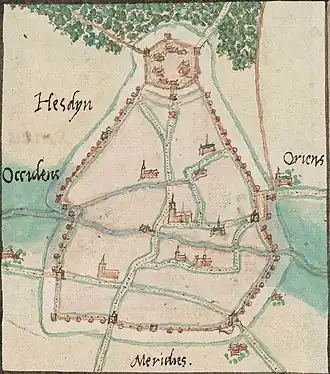 Hesdyn
Oriens
Occidens
Meridies.